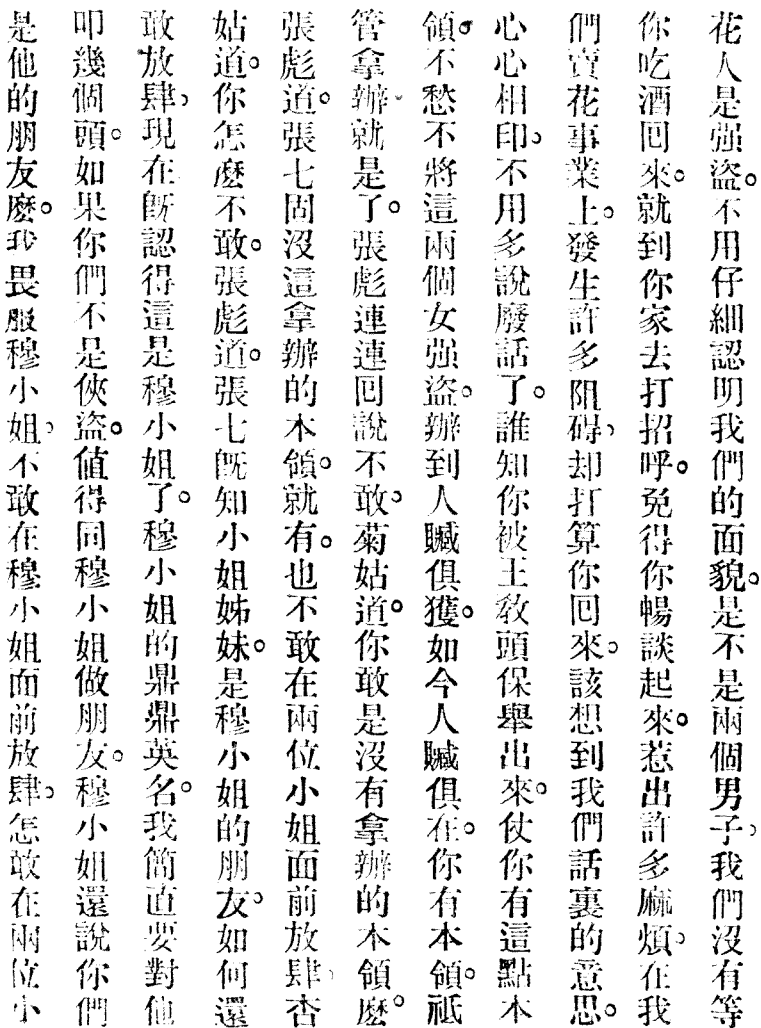 花人是强盜。不用仔細認明我們的面貌。是不是兩個男子。我們沒有等
你吃酒回來。就到你家去打招呼。免得你暢談起來。惹出許多麻煩。在我
們賣花事業上。發生許多阻碍。却打算你回來。該想到我們話裏的意思。
心心相印。不用多說廢話了。誰知你被王敎頭保舉出來。仗你有這點本
領。不愁不將這兩個女强盜。辦到人贓俱獲。如今人贓俱在。你有本領。祗
管拿辦就是了。張彪連連回說不敢。菊姑道。你敢是沒有拿辦的本領麽。
張彪道。張七固沒這拿辦的本領。就有。也不敢在兩位小姐面前放肆。杏
姑道。你怎麽不敢。張彪道。張七旣知小姐姊妹。是穆小姐的朋友。如何還
敢放肆。現在旣認得這是穆小姐了。穆小姐的鼎鼎英名。我簡直要對他
叩幾個頭。如果你們不是俠盜。值得同穆小姐做朋友。穆小姐還說你們
是他的朋友麽。我畏服穆小姐。不敢在穆小姐面前放肆。怎敢在兩位小